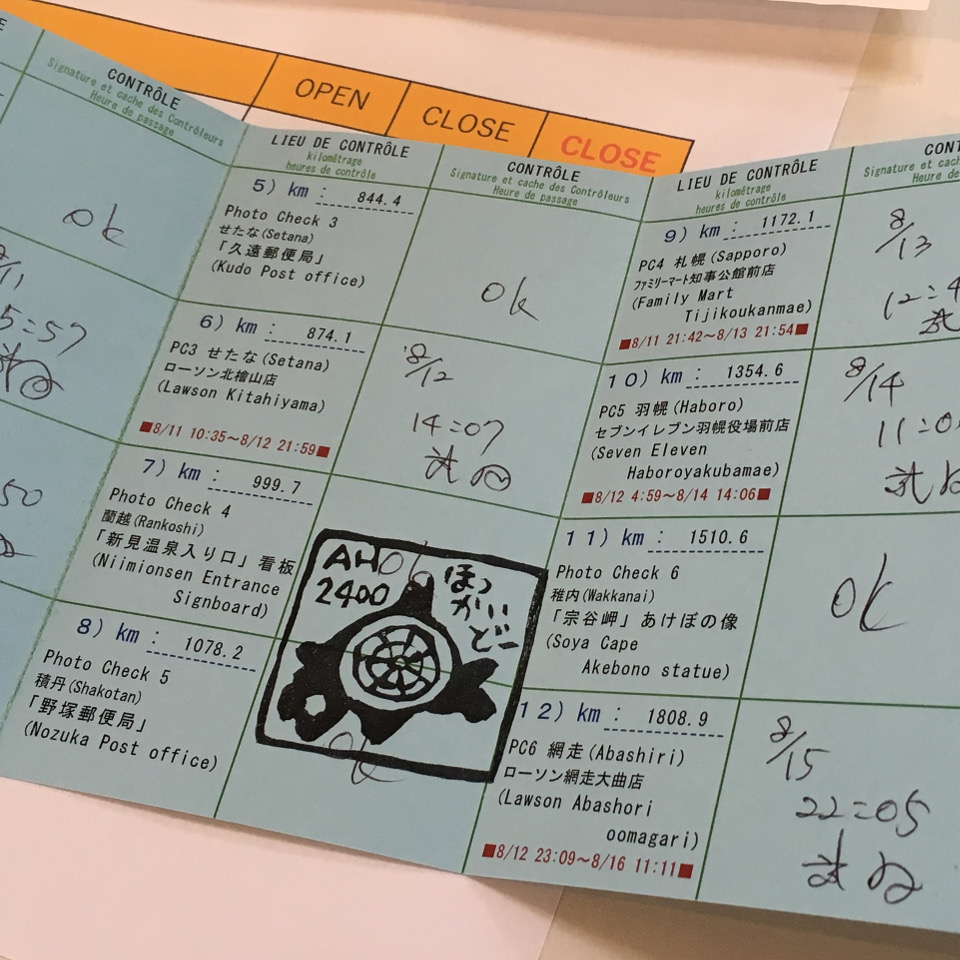 OPEN
CLOSE
CLOSE
CONTRÔLE
Signature et cache des Contrôleurs
Heure de passage
ok
5:57
50
LIEU DE CONTRÔLE
kilométrage
heures de contrôle
5) km : 844.4
Photo Check 3
せたな(Setana)
「久遠郵便局」
(Kudo Post office)
6) km : 874.1
PC3 せたな(Setana)
ローソン北檜山店
(Lawson Kitahiyama)
■8/11 10:35～8/12 21:59■
7) km : 999.7
Photo Check 4
蘭越(Rankoshi)
「新見温泉入り口」看板
(Niimionsen Entrance
Signboard)
8) km : 1078.2
Photo Check 5
積丹(Shakotan)
「野塚郵便局」
(Nozuka Post office)
CONTRÔLE
Signature et cache des Contrôleurs
Heure de passage
ok
8/12
14:07
AH
2400
ほっ
かい
どー
ok
LIEU DE CONTRÔLE
kilométrage
heures de contrôle
9) km : 1172.1
PC4 札幌(Sapporo)
ファミリーマート知事公館前店
(Family Mart
Tijikoukanmae)
■8/11 21:42～8/13 21:54■
10) km : 1354.6
PC5 羽幌(Haboro)
セブンイレブン羽幌役場前店
(Seven Eleven
Haboroyakubamae)
■8/12 4:59～8/14 14:06■
11) km : 1510.6
Photo Check 6
稚内(Wakkanai)
「宗谷岬」あけぼの像
(Soya Cape
Akebono statue)
12) km : 1808.9
PC6 網走(Abashiri)
ローソン網走大曲店
(Lawson Abashori
oomagari)
■8/12 23:09～8/16 11:11■
CONT
Signature et cache
Heure de
8/13
12:4
8/14
11:0
ok
8/15
22:05